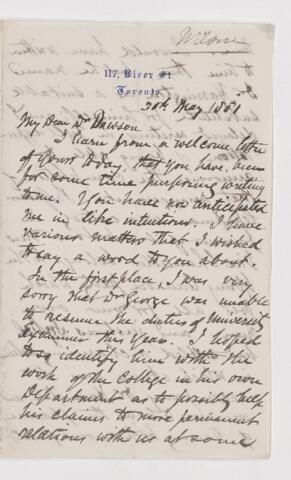 Wilson
117, Bloor St
Toronto
20th May 1881
My Dear Dr Dawson
I learn from a welcome letter
of yours today, that you have been
for some time purposing writing
to me. You have now anticipated
me in like intentions. I have
various matters that I wished
to say a word to you about.
In the first place, I was very
sorry that Dr George was unable
to resume the duties of University
Examiner this year. I hoped
to so identify him with the
work of the College in his own
Department as to possibly help
his claims to more permanent
relations with us at some